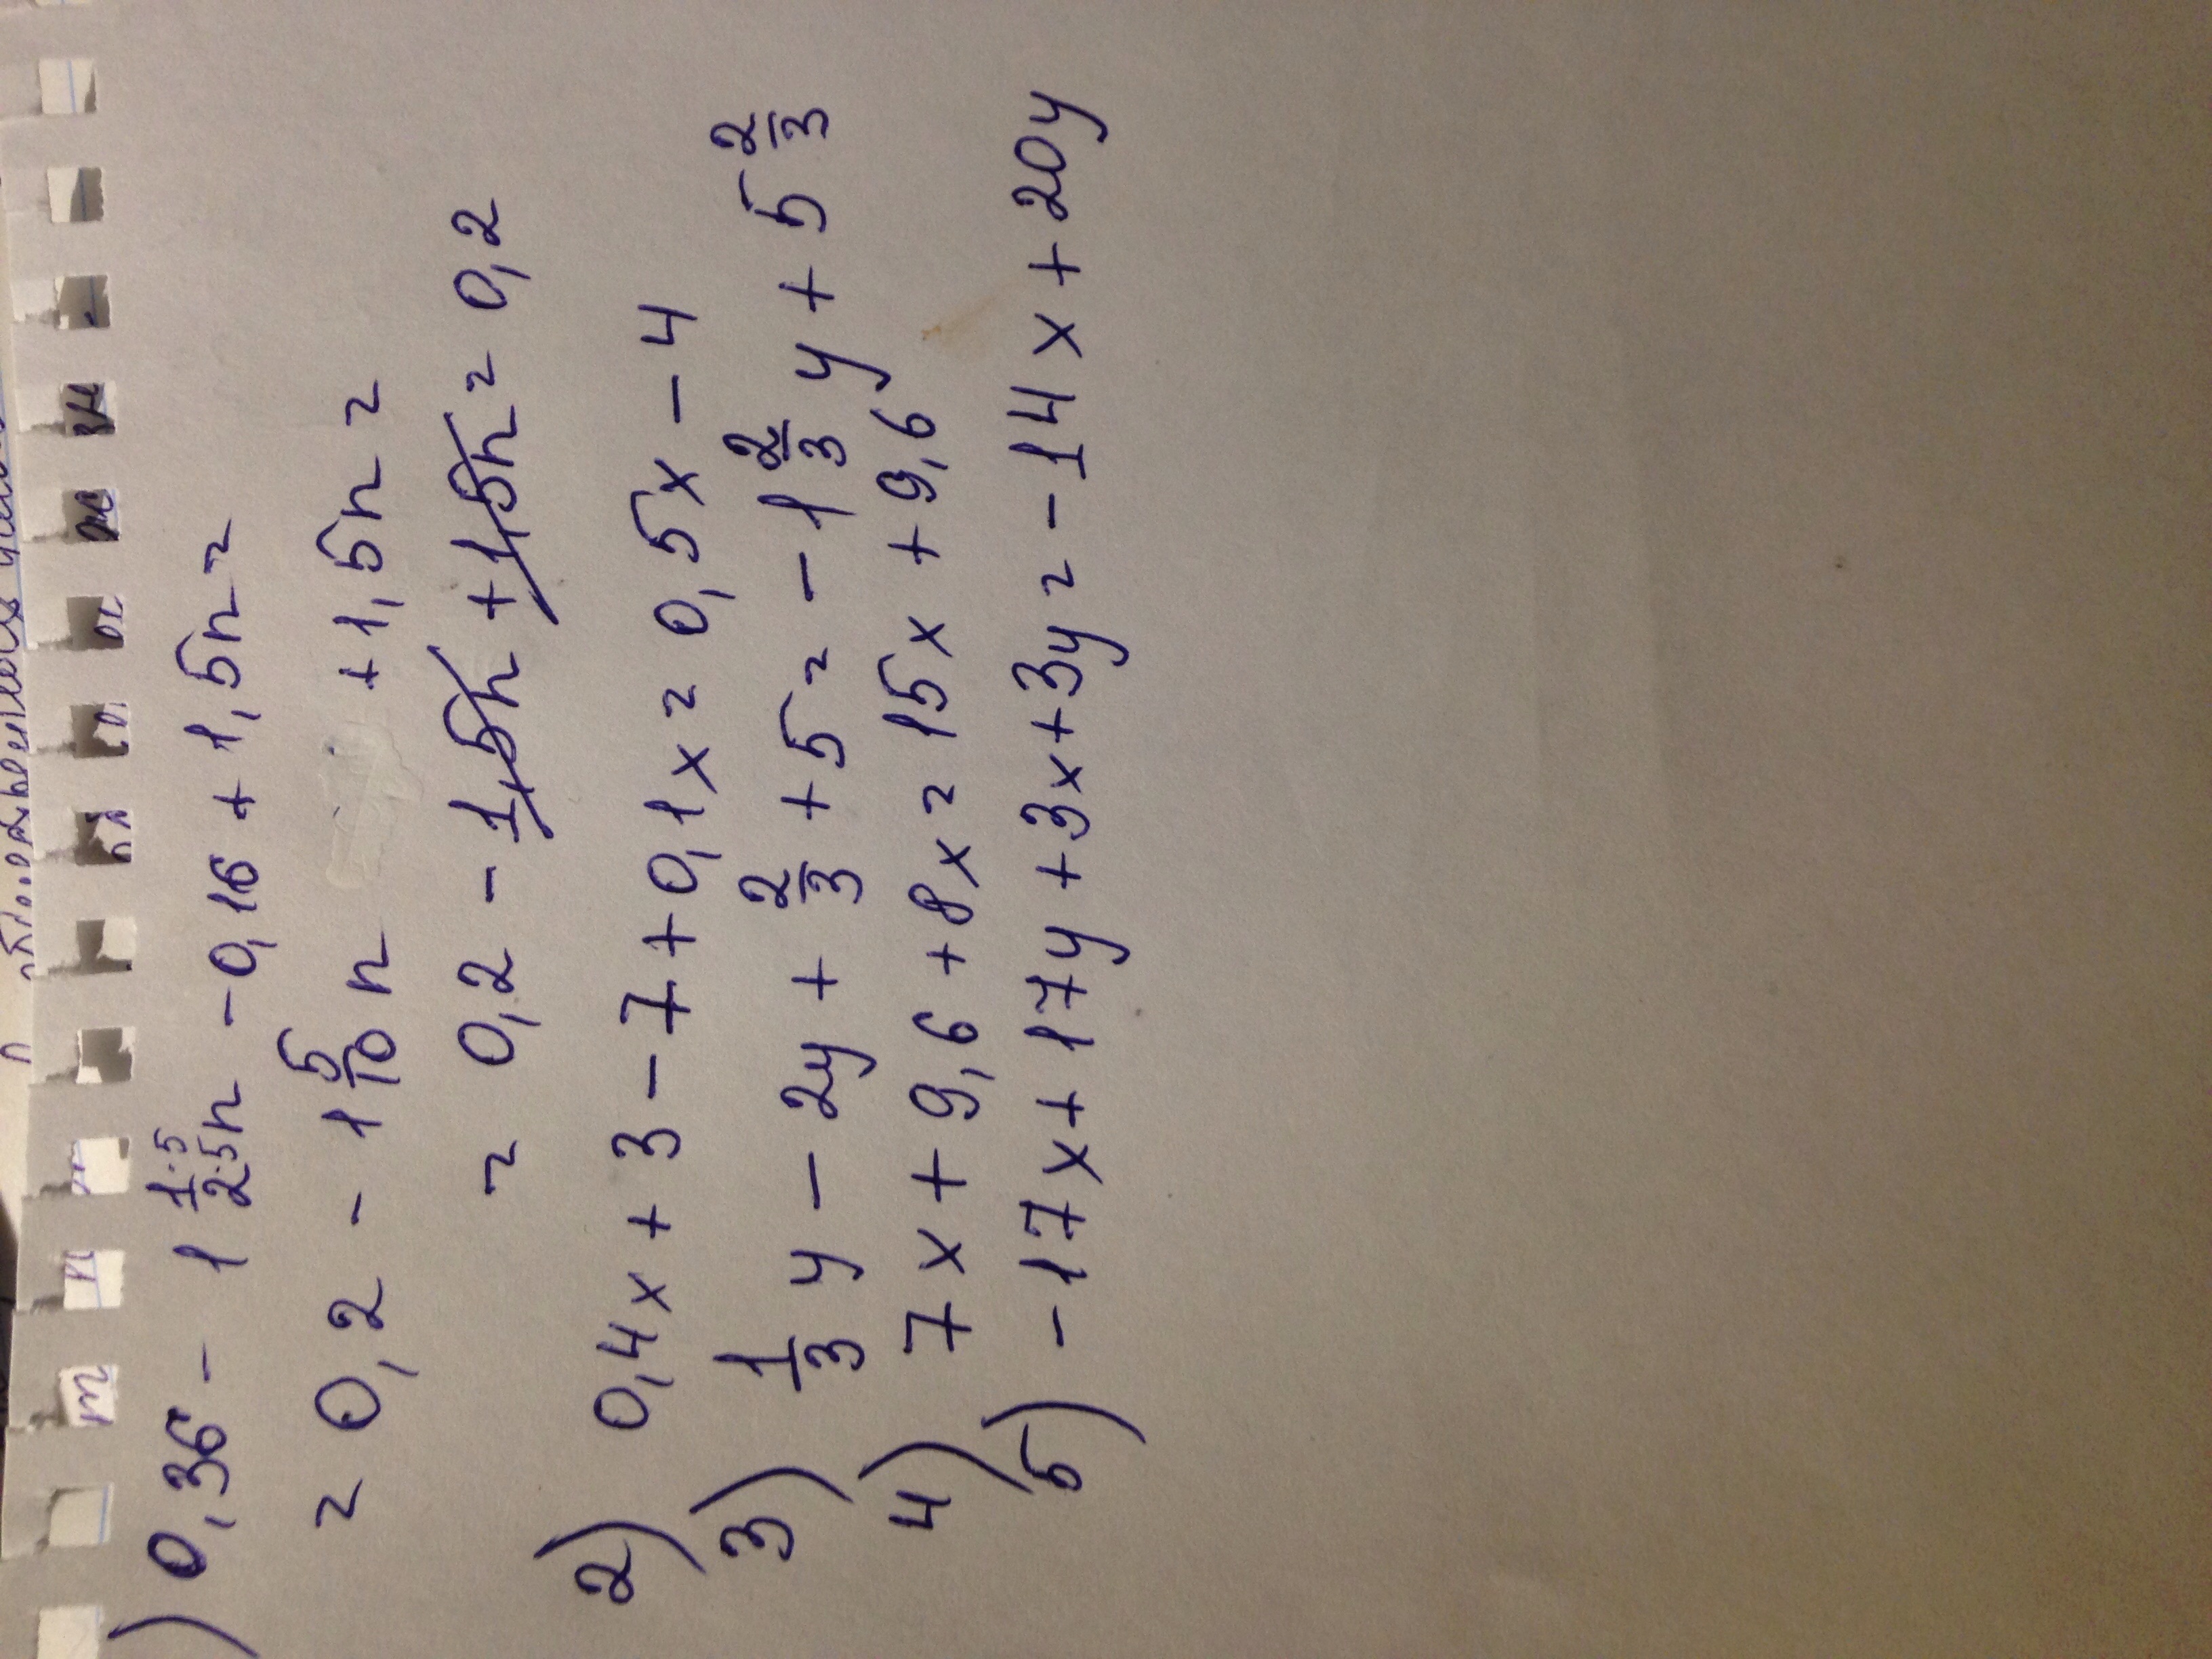 ) 0,36 - 1 1·5/2·5 n - 0,16 + 1,5n =
= 0,2 - 1 5/10 n + 1,5n =
= 0,2 - 1,5n + 1,5n = 0,2
2) 0,4x + 3 - 7 + 0,1x = 0,5x - 4
3) 1/3 y - 2y + 2/3 + 5 = - 1 2/3 y + 5 2/3
4) 7x + 9,6 + 8x = 15x + 9,6
5) -17x + 17y + 3x + 3y = -14x + 20y